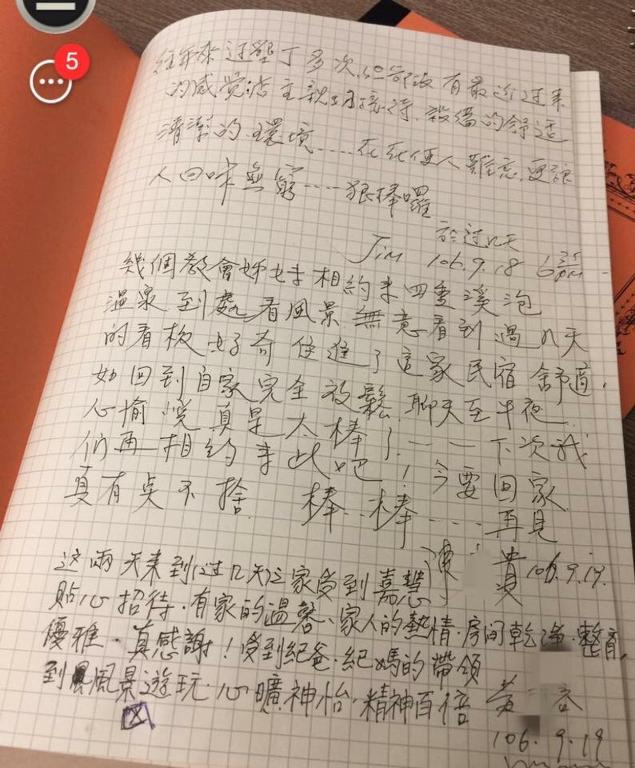 5
往年來過墾丁多次,但都沒有最近過來
的感覺店主親切接待,設備的舒適
清潔的環境....在在使人難忘,更讓
人回味無窮....狠棒囉
於過几天
Jim 106.9.18 6 pm
幾個教會姊妹相約來四重溪泡
溫泉到處看風景無意看到過几天
的看板好奇住進了這家民宿舒適,
如回到自家完全放鬆,聊天至半夜
心愉悅真是太棒了.——下次我
們再相約來此吧!今要回家
真有点不捨 棒..棒....再見
貴 106.9.19.
这兩天来到(过几天)之家受到嘉慧
貼心招待.有家的溫馨、家人的熱情.房間乾净.整齊,
優雅.真感謝!受到紀爸.紀媽的帶領
到風景遊玩.心曠神怡.精神百倍 黃
106.9.19